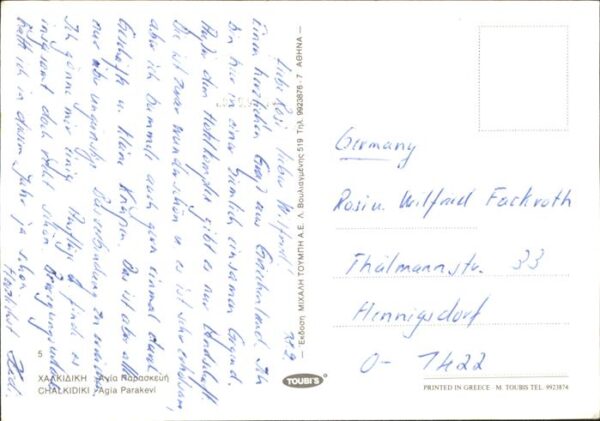 Liebe Rosi, lieber Wilfried!
Einen herzlichen Gruß aus Griechenland. Ich
bin hier in einer ziemlich einsamen Gegend.
Außer dem Hotelkomplex gibt es nur Landschaft
Die ist zwar wunderschön u. es ist sehr erholsam,
aber ich bummle auch gern einmal durch
Geschäfte u. kleine Kneipen. Das ist aber alles
nur über ungünstige Busverbindung zu erreichen.
Ich gönne mir einige Ausflüge u. finde es
insgesamt doch recht schön.
hatte ich in diesem Jahr ja schon
Herzlichst
Germany
Rosi u. Wilfried Fackroth
Thälmannstr. 33
Hennigsdorf
O- 1422
– Έκδοση ΜΙΧΑΛΗ ΤΟΥΜΠΗ Α.Ε. Λ. Βουλιαγμένης 519 Τηλ. 9923876 - 7 ΑΘΗΝΑ –
5
ΧΑΛΚΙΔΙΚΗ - Αγία Παρασκευή
CHALKIDIKI - Agia Parakevi
TOUBI'S
PRINTED IN GREECE - M. TOUBIS TEL. 9923874